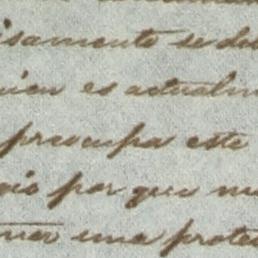 isamente se de
uien es actualm
preocupa este
gio por que m
una prote